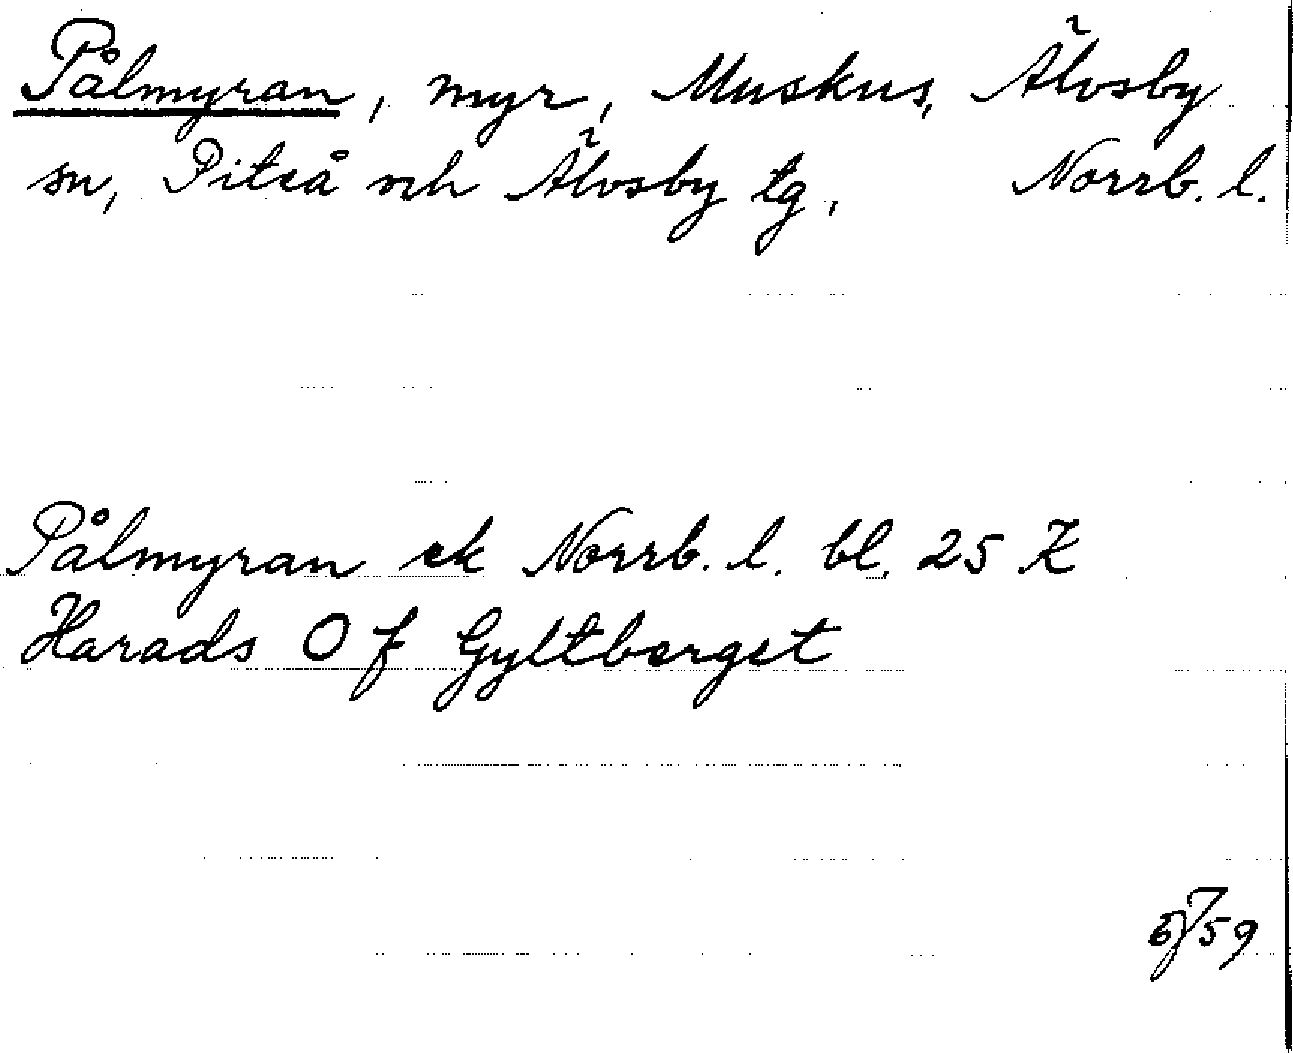 Pålmyran, myr, Muskus, Älvsby
sn, Piteå och Älvsby tg, Norrb. l.
Pålmyran ek Norrb. l. bl. 25 K
Harads O f Gyltberget